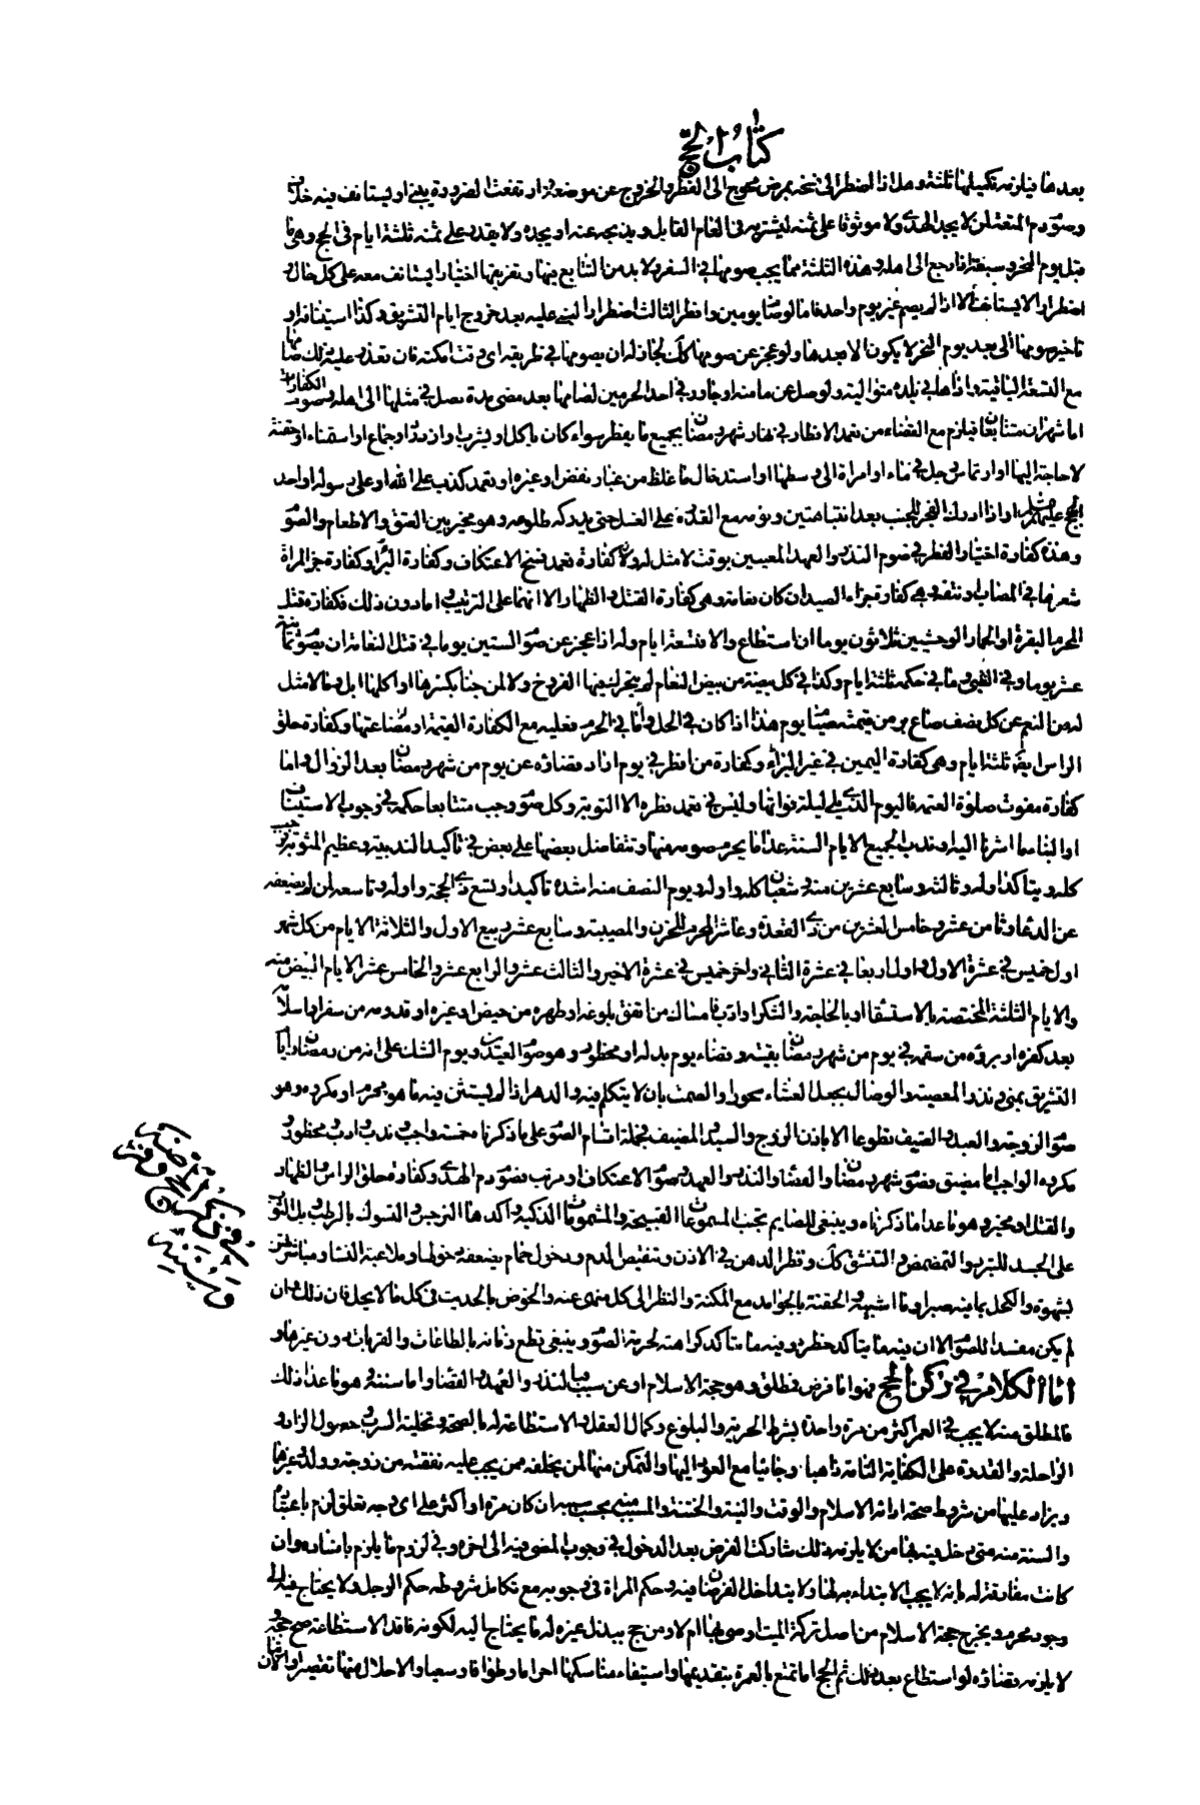 كتاب الحج
بعدها فيلزمه تكميلها ثلثة وهل اذا اضطر الى فسخه بمرض محوج الى الفطر والخروج عن موضعه او تفعت الضرورة يبني او يستانف فيه خلاف
وصوم دم المتعة لمن لا يجد الهدى ولا موثوقا على ثمنه ليشتريه في العام القابل ويذبحه عنه او يجده ولا يقدر على ثمنه ثلثة ايام في الحج وهى ما
قبل يوم النحر وسبعة اذا رجع الى اهله وهذه الثلثة مما يجب صومها في السفر ولا بد من التتابع بينها وتفريقها اختيارا يستانف معه على كل حال و
اضطرارا لا يستانف الا اذا لم يصم غير يوم واحد فاما لو صام يومين وافطر الثالث اضطرارا البنى عليه بعد خروج ايام التشريق وكذا استينافه او
تاخير صومها الى بعد يوم النحر لا يكون الا بعدها ولو عجز عن صومها كذلك لجاز له ان يصومها في طريقه اى وقت امكنه فان تعذر عليه ذلك صامها
مع السبعة الباقية اذا ... في بلده متوالية ولو صل عن ما منه او جاور في احد الحرمين لصامها بعد مضى مدة يصل في مثلها الى اهله وصوم الكفارات
اما شهران متتابعان فيلزم مع القضاء من تعمد الافطار في نهار شهر رمضان بجميع ما يفطر سواء كان باكل او شرب او ازدراد او جماع او استمناء او حقنة
لا حاجة اليها او ارتماس رجل في ماء او امراة الى وسطها او استدخال ما غلظ من غبار نفض او غيره او تعمد كذب على الله او على رسوله او احد
الحجج عليهم السلام او اذا ادرك الفجر الجنب بعد انتباهتين ونومه مع القدرة على الغسل حتى يدركه طلوعه وهو مخير بين العتق والاطعام والصوم
وهذه كفارة اختيار الفطر في صوم النذر والعهد المعينين بوقت لا مثل له ولا كفارة تعمد فسخ الاعتكاف وكفارة البراءة وكفارة جز المراة
شعرها في المصاب او نتفه وهى كفارة جزاء الصيد ان كان نعامة وهى كفارة القتل والظهار الا انهما على الترتيب واما دون ذلك فكفارة قتل
المحرم البقرة او الحمار الوحشيين ثلاثون يوما ان استطاع والا فتسعة ايام وله اذا عجز عن صوم الستين يوما في قتل النعامة ان يصوم ثمانية
عشر يوما وفي الظبي وما في حكمه ثلثة ايام وكذا في كل بيضة من بيض النعام لم يتحرك فيها الفروخ ولا لمن جنا بكسرها او اكلها ابل وما لا مثل
له من النعم عن كل نصف صاع بر من قيمته صيام يوم هذا اذا كان في الحل واما في الحرم فعليه مع الكفارة القيمة او مضاعتها وكفارة حلق
الراس ايضا ثلثة ايام وهى كفارة اليمين في غير البراءة وكفارة من افطر في يوم اراد قضاؤه عن يوم من شهر رمضان بعد الزوال واما
كفارة مفوت صلوة العتمة فاليوم الذى يلى ليلة فواتها وليس في تعمد فطره الا التوبة وكل صوم وجب متتابعا حكمه في وجوب الاستيناف
او البناء ما اشرنا اليه وندب الجميع الايام السنة عدا ما يحرم صومه منها وتتفاضل بعضها على بعض في تاكيد الندبية وعظيم المثوبة رجب
كله ويتاكد اوله وثالثه وسابع عشرين منه وشعبان كله واوله ويوم النصف منه اشده تاكيدا وتسع ذى الحجة واوله وتاسعه لمن لم يضعفه
عن الدعاء وثامن عشره وخامس العشرين من ذى القعدة وعاشر المحرم للحزن والمصيبة وسابع عشر ربيع الاول والثلاثة الايام من كل شهر
اول خميس في عشرة الاول واول اربعا في عشرة الثاني واخر خميس في عشرة الاخير والثالث عشر والرابع عشر والخامس عشر الايام البيض منه
والايام الثلثة المختصة بالاستسقاء او بالحاجة والشكر وادب فامساك من اتفق بلوغه او طهره من حيض او غيره او قدومه من سفر او اسلامه
بعد كفره او برؤه من سقمه في يوم من شهر رمضان بقيته وقضاء يوم بدله او محظور وهو صوم العيدين ويوم الشك على انه من رمضان وايام
التشريق بمنى ونذر المعصية والوصال بجعل العشاء سحورا والصمت بان لا يتكلم فيه والدهر اذا لم يستثن فيه ما هو محرم او مكروه وهو
صوم الزوجة والعبد والضيف تطوعا الا باذن الزوج والسيد والمضيف فجملة اقسام الصوم على ما ذكرنا خمسة واجب وندب وادب ومحظور و
مكروه الواجب اما مضيق بصوم شهر رمضان والقضاء والنذر والعهد وصوم الاعتكاف او مرتب بصوم دم الهدى وكفارة حلق الراس والظهار
والقتل او مخير وهو ما عدا ما ذكرناه وينبغي للصايم تجنب المسموعات القبيحة والمشمومات الذكية واكدها النرجس والتسوك بالرطب وبل الثوب
على الجسد للتبرد والتمضمض والتنشق كذلك وتقطر الدهن في الاذن وتنقيص الدم ودخول حمام يضعفه دخولها وملاعبة النساء ومباشرتهن
بشهوة والكحل بما فيه صبر او ما اشبهه والحقنة بالجوامد مع المكنة والنظر الى كل منهى عنه والخوض بالحديث في كل ما لا يحل فان ذلك وان
لم يكن مفسدا للصوم الا ان فيه ما يتاكد حظره وفيه ما يتاكد كراهته لحرمة الصوم وينبغي قطع زمانه بالطاعات والقربات دون غيرها و
اما الكلام في ركن الحج فهو اما فرض مطلق وهو حجة الاسلام او عن سبب بالنذر والعهد والقضاء واما سنة وهو ما عدا ذلك
فالمطلق منه لا يجب في العمر اكثر من مرة واحدة بشرط الحرية والبلوغ وكمال العقل والاستطاعة له بالصحة وتخلية السرب وحصول الزاد و
الراحلة والقدرة على الكفاية التامة ذاهبا وجائيا مع العود اليها والتمكن منها لمن يخلفه ممن يجب عليه نفقته من زوجة وولد وغيرهما
ويزاد عليها من شروط صحة ادائه الاسلام والوقت والنية والختنة والمسبب منه بحسب سببه ان كان مرة او اكثر على اى وجه تعلق لزم باعتباره
والسنة منه متى دخل فيه بها من لا يلزمه ذلك شاركت الفرض بعد الدخول في وجوب المضى فيه الى اخره وفي لزوم ما يلزم بافساده وان
كانت مفارقة له بانه لا يجب الابتداء به لها ولا يتداخل الفرضان فيه وحكم المراة في وجوبه مع تكامل شروطه حكم الرجل ولا يحتاج فيه الى
وجود محرم ويخرج حجة الاسلام من اصل تركة الميت اوصى بها ام لا ومن حج ببذل غيره له ما يحتاج اليه لكونه فاقد الاستطاعة صح حجه و
لا يلزمه قضاؤه لو استطاع بعد ذلك ثم الحج اما تمتع بالعمرة بتقديمها واستيفاء مناسكها احراما وطوافا وسعيا والاحلال منها تقصيرا والاتيان
في ذكر الحج وفرضه
وسننه